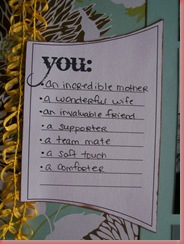 you:
• an incredible mother
• a wonderful wife
• an invaluable friend
• a supporter
• a team mate
• a soft touch
• a comforter